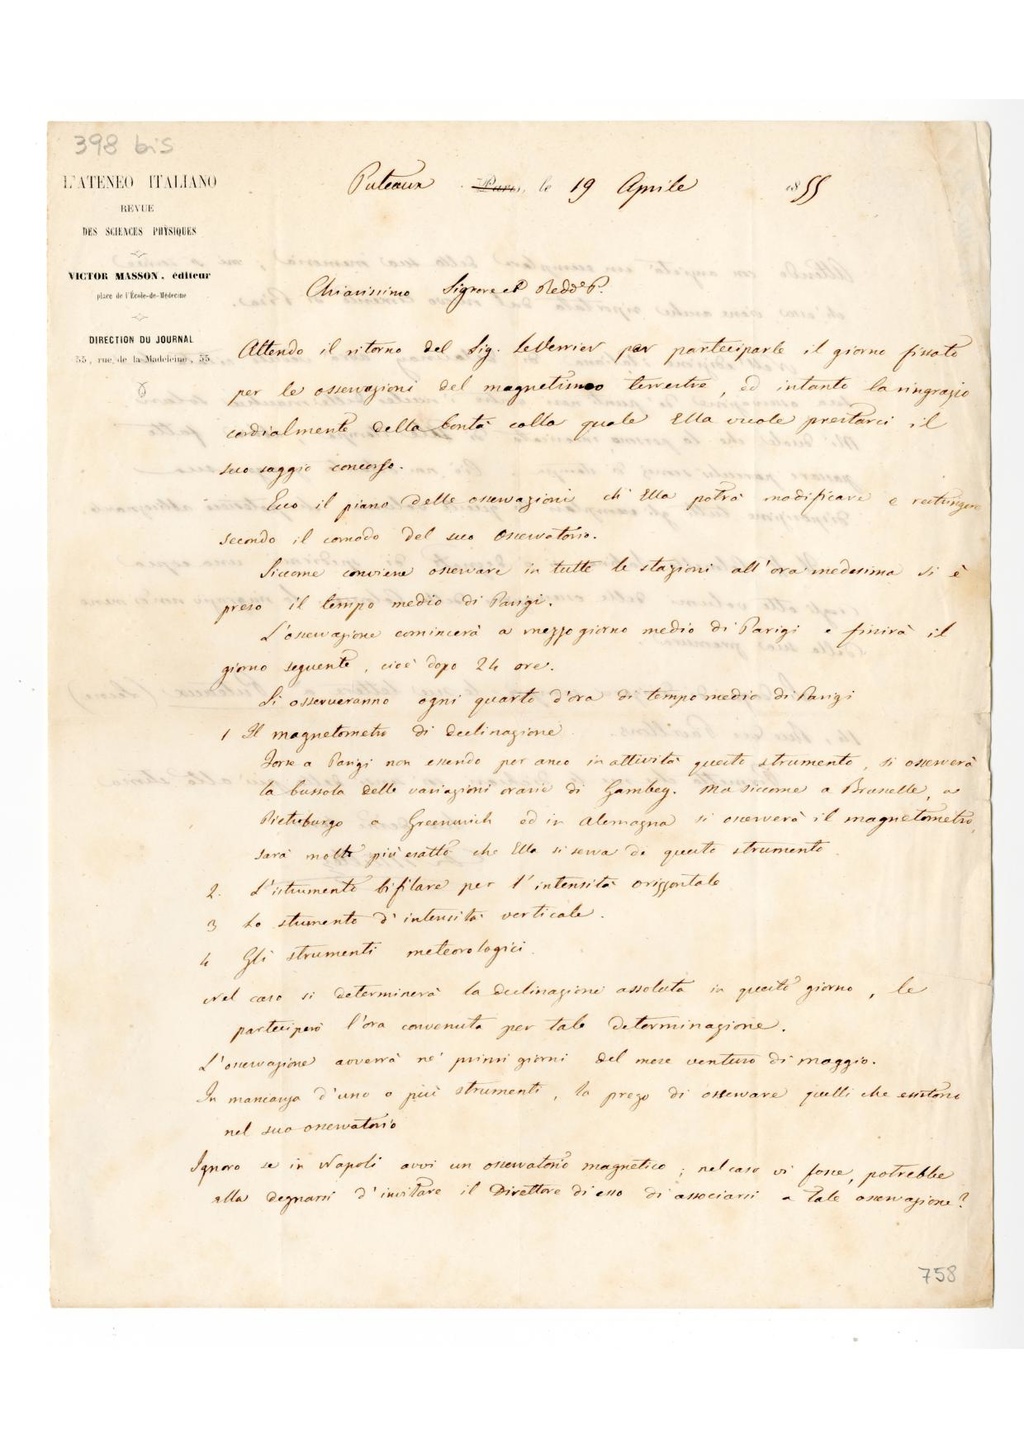 398 bis
L'ATENEO ITALIANO
REVUE
DES SCIENCES PHYSIQUES
VICTOR MASSON, éditeur
place de l'École-de-Médecine
DIRECTION DU JOURNAL
55, rue de la Madeleine, 55
Puteaux Paris, le 19 Aprile 1855
Chiarissimo Signore e Redo P.
Attendo il ritorno del Sig. LeVerrier per parteciparle il giorno fissato
per le osservazioni del magnetismo terrestre, ed intanto la ringrazio
cordialmente della bontà colla quale Ella vuole prestarci il
suo saggio concorso.
Ecco il piano delle osservazioni ch' Ella potrà modificare e restringere
secondo il comodo del suo Osservatorio.
Siccome conviene osservare in tutte le stazioni all'ora medesima si è
preso il tempo medio di Parigi.
L'osservazione comincerà a mezzo giorno medio di Parigi e finirà il
giorno seguente, cioè dopo 24 ore.
Si osserveranno ogni quarto d'ora di tempo medio di Parigi
1 Il magnetometro di declinazione.
Forse a Parigi non essendo per anco in attività questo strumento, si osserverà
la bussola delle variazioni orarie di Gambey. Ma siccome a Brusselle, a
Pietroburgo a Greenwich ed in Alemagna si osserverà il magnetometro,
sarà molto più esatto che Ella si serva di questo strumento
2. L'istrumento bifilare per l'intensità orizzontale
3 Lo strumento d'intensità verticale.
4 Gli strumenti meteorologici.
Nel caso si determinerà la declinazione assoluta in questo giorno, le
parteciperò l'ora convenuta per tale determinazione.
L'osservazione avverrà ne' primi giorni del mese venturo di maggio.
In mancanza d'uno o più strumenti, la prego di osservare quelli che esistono
nel suo osservatorio
Ignoro se in Napoli avvi un osservatorio magnetico; nel caso vi fosse, potrebbe
ella degnarsi d'invitare il Direttore di esso di associarsi a tale osservazione?
758